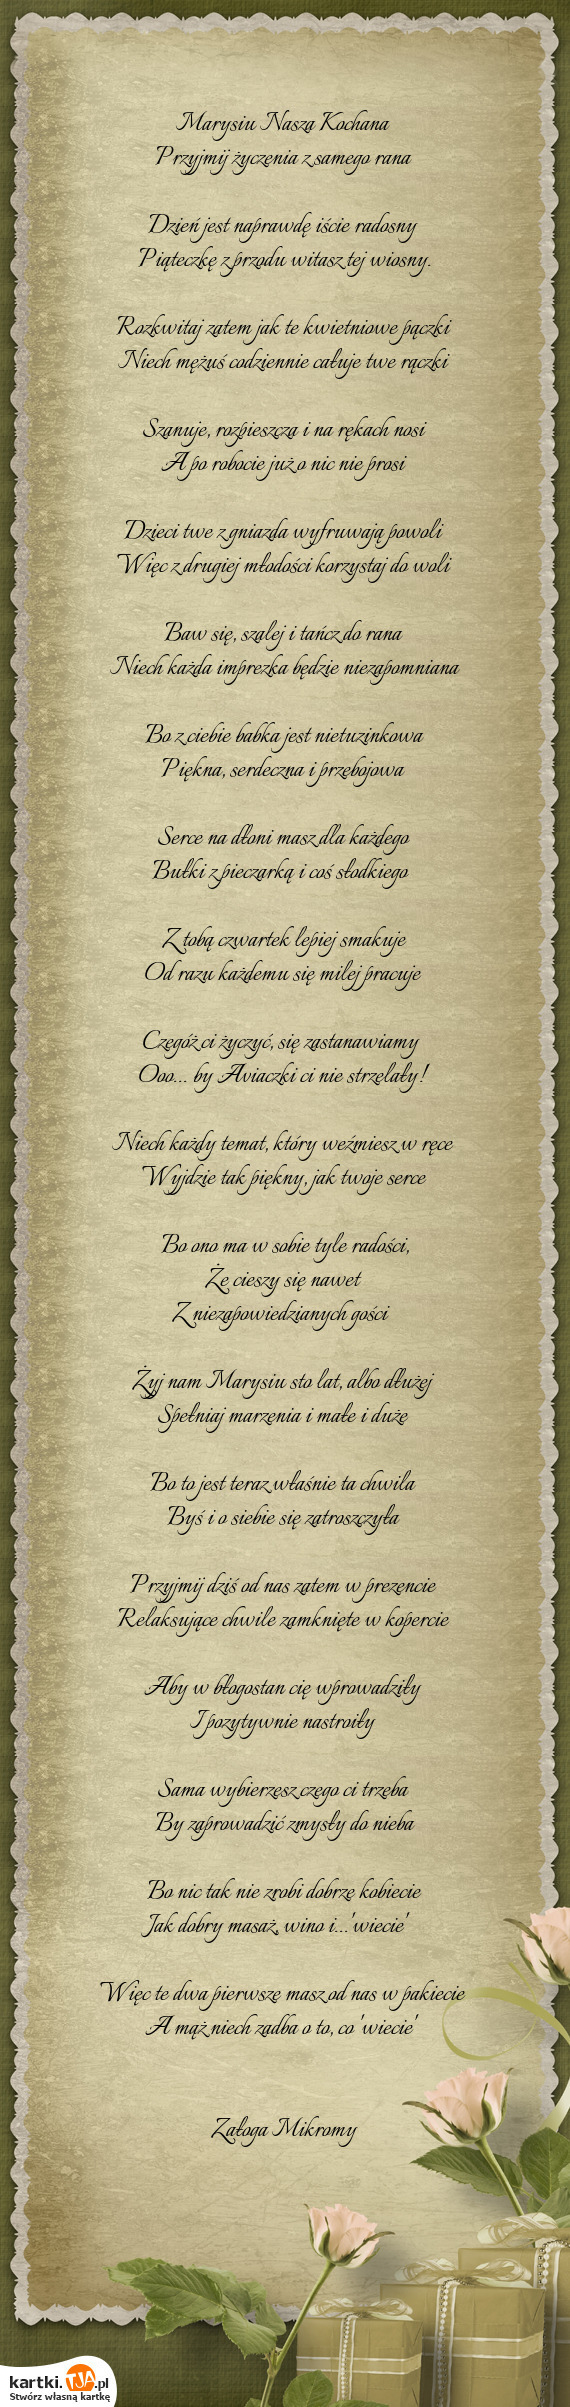 Marysiu Nasza Kochana
Przyjmij życzenia z samego rana
Dzień jest naprawdę iście radosny
Piąteczkę z przodu witasz tej wiosny.
Rozkwitaj zatem jak te kwietniowe pączki
Niech mężuś codziennie całuje twe rączki
Szanuje, rozpieszcza i na rękach nosi
A po robocie już o nic nie prosi
Dzieci twe z gniazda wyfruwają powoli
Więc z drugiej młodości korzystaj do woli
Baw się, szalej i tańcz do rana
Niech każda imprezka będzie niezapomniana
Bo z ciebie babka jest nietuzinkowa
Piękna, serdeczna i przebojowa
Serce na dłoni masz dla każdego
Bułki z pieczarką i coś słodkiego
Z tobą czwartek lepiej smakuje
Od razu każdemu się milej pracuje
Czegóż ci życzyć, się zastanawiamy
Ooo... by Aviaczki ci nie strzelały!
Niech każdy temat, który weźmiesz w ręce
Wyjdzie tak piękny, jak twoje serce
Bo ono ma w sobie tyle radości,
Że cieszy się nawet
Z niezapowiedzianych gości
Żyj nam Marysiu sto lat, albo dłużej
Spełniaj marzenia i małe i duże
Bo to jest teraz właśnie ta chwila
Byś i o siebie się zatroszczyła
Przyjmij dziś od nas zatem w prezencie
Relaksujące chwile zamknięte w kopercie
Aby w błogostan cię wprowadziły
I pozytywnie nastroiły
Sama wybierzesz czego ci trzeba
By zaprowadzić zmysły do nieba
Bo nic tak nie zrobi dobrze kobiecie
Jak dobry masaż, wino i...'wiecie'
Więc te dwa pierwsze masz od nas w pakiecie
A mąż niech zadba o to, co 'wiecie'
Załoga Mikromy
kartki.TJA.pl
Stwórz własną kartkę